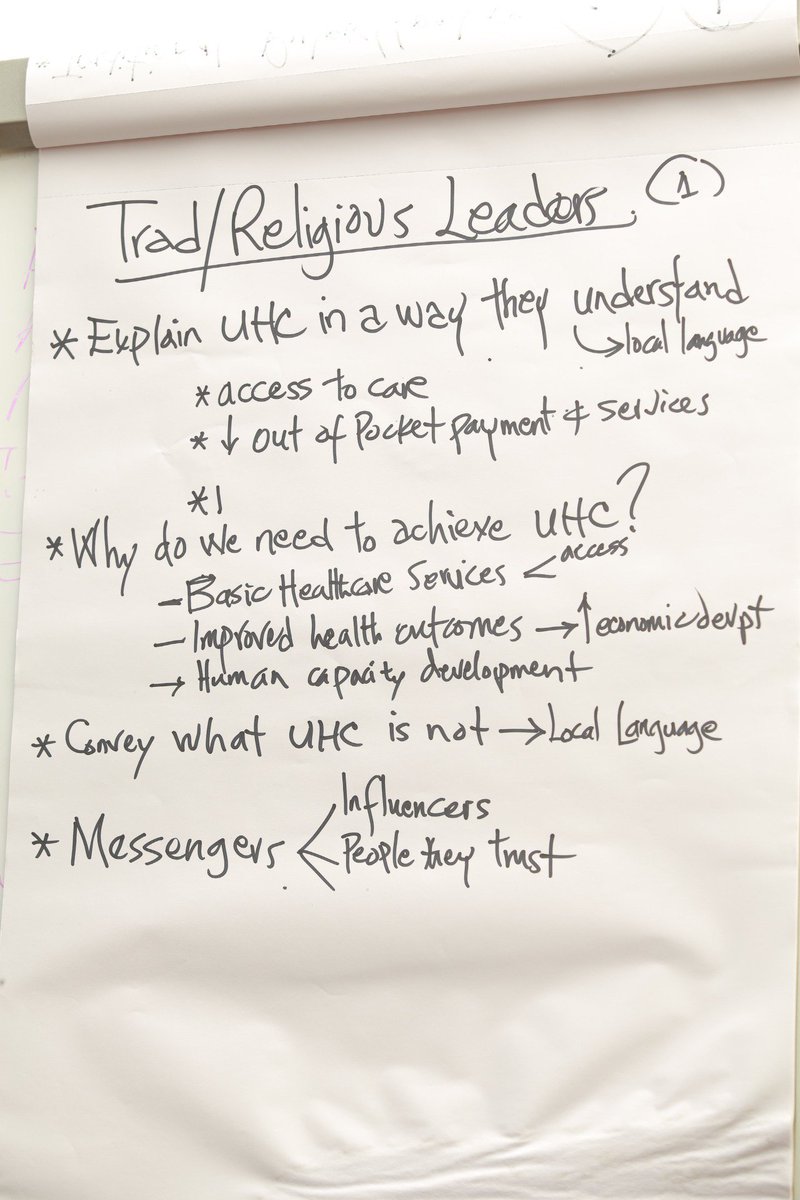 Trad/Religious Leaders. (1)
* Explain UHC in a way they understand
↳ local language
* access to care
* ↓ out of Pocket payment & services
* I
* Why do we need to achieve UHC?
- Basic Healthcare Services < access
- Improved health outcomes → ↑ economic devpt
→ Human capacity development
* Convey what UHC is not → Local Language
* Messengers < Influencers
People they trust